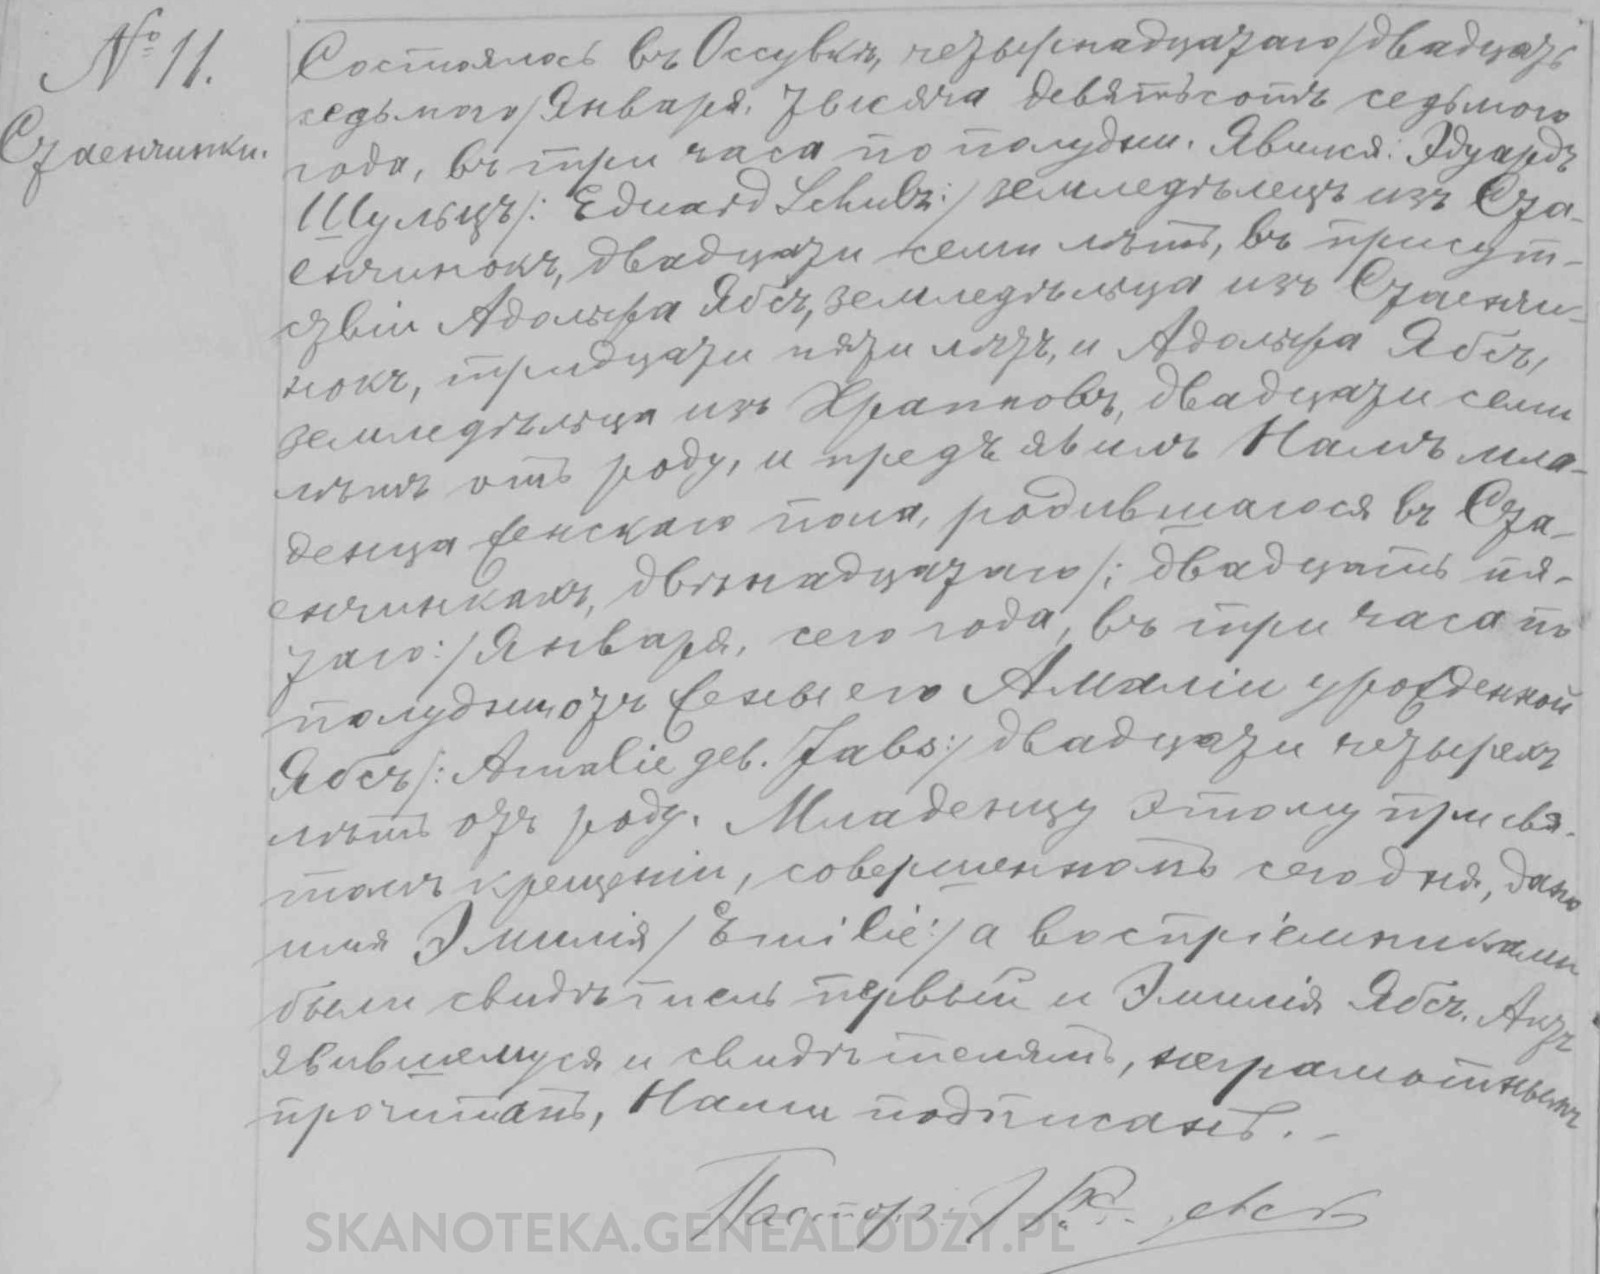 № 11.
Стаенчинки.
Состоялось въ Оссувкѣ, четырнадцатаго /двадцать
седьмого/ Января, тысяча девятьсотъ седьмого
года, въ три часа по полудни. Явился: Эдуардъ
Шульцъ /: Eduard Schulz :/ земледѣлецъ изъ Ста-
енчинокъ, двадцати семи лѣтъ, въ присут-
ствіи Адольфа Ябсъ, земледѣльца изъ Стаенчи-
нокъ, тридцати пяти лѣтъ, и Адольфа Ябсъ,
земледѣльца изъ Храпковъ, двадцати семи
лѣтъ отъ роду, и предъявилъ Намъ мла-
денца женскаго пола, родившагося въ Ста-
енчинкахъ, двѣнадцатаго /: двадцать пя-
таго :/ Января, сего года, въ три часа по
полудни, отъ жены его Амаліи урожденной
Ябсъ /: Amalie geb. Jabs :/ двадцати четырехъ
лѣтъ отъ роду. Младенцу этому при свя-
томъ крещеніи, совершенномъ сего дня, дано
имя Эмилія / Emilie :/ а воспріемниками
были свидѣтель первый и Эмилія Ябсъ. Актъ
явившемуся и свидѣтелямъ, неграмотнымъ
прочитанъ, Нами подписанъ. -
Пасторъ
SKANOTEKA.GENEALODZY.PL